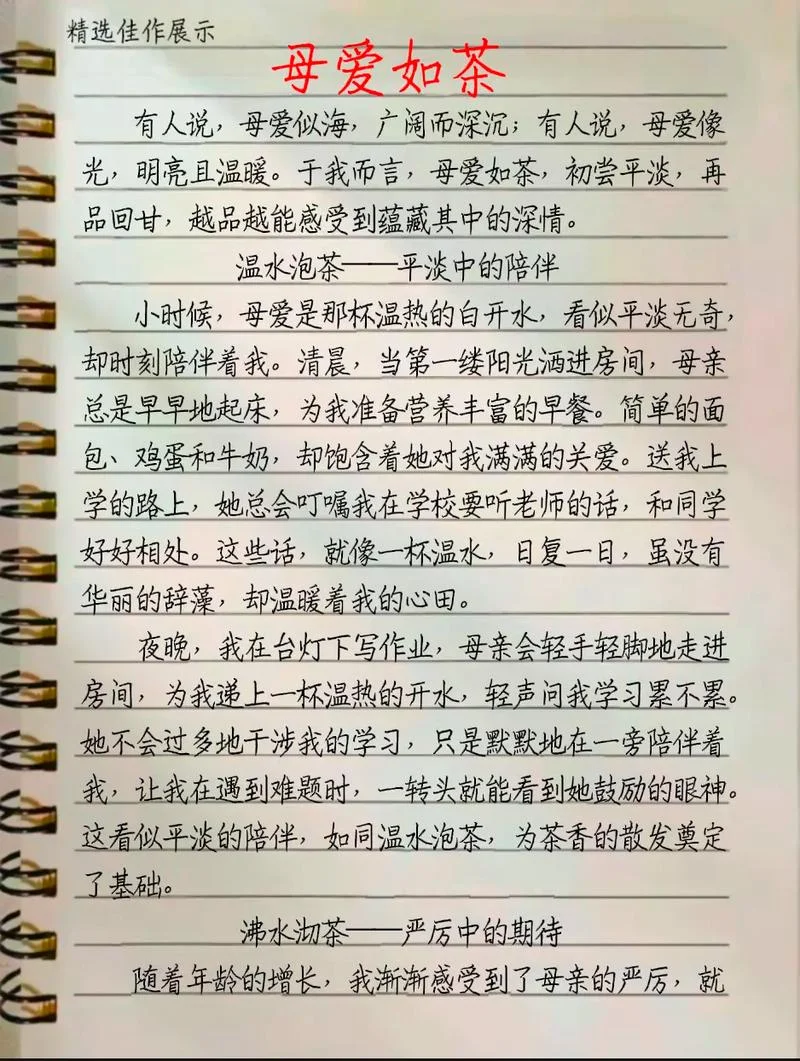 精选佳作展示
母爱如茶
有人说，母爱似海，广阔而深沉；有人说，母爱像
光，明亮且温暖。于我而言，母爱如茶，初尝平淡，再
品回甘，越品越能感受到蕴藏其中的深情。
温水泡茶——平淡中的陪伴
小时候，母爱是那杯温热的白开水，看似平淡无奇，
却时刻陪伴着我。清晨，当第一缕阳光洒进房间，母亲
总是早早地起床，为我准备营养丰富的早餐。简单的面
包、鸡蛋和牛奶，却饱含着她对我满满的关爱。送我上
学的路上，她总会叮嘱我在学校要听老师的话，和同学
好好相处。这些话，就像一杯温水，日复一日，虽没有
华丽的辞藻，却温暖着我的心田。
夜晚，我在台灯下写作业，母亲会轻手轻脚地走进
房间，为我递上一杯温热的开水，轻声问我学习累不累。
她不会过多地干涉我的学习，只是默默地在一旁陪伴着
我，让我在遇到难题时，一转头就能看到她鼓励的眼神。
这看似平淡的陪伴，如同温水泡茶，为茶香的散发奠定
了基础。
沸水沏茶——严厉中的期待
随着年龄的增长，我渐渐感受到了母亲的严厉，就